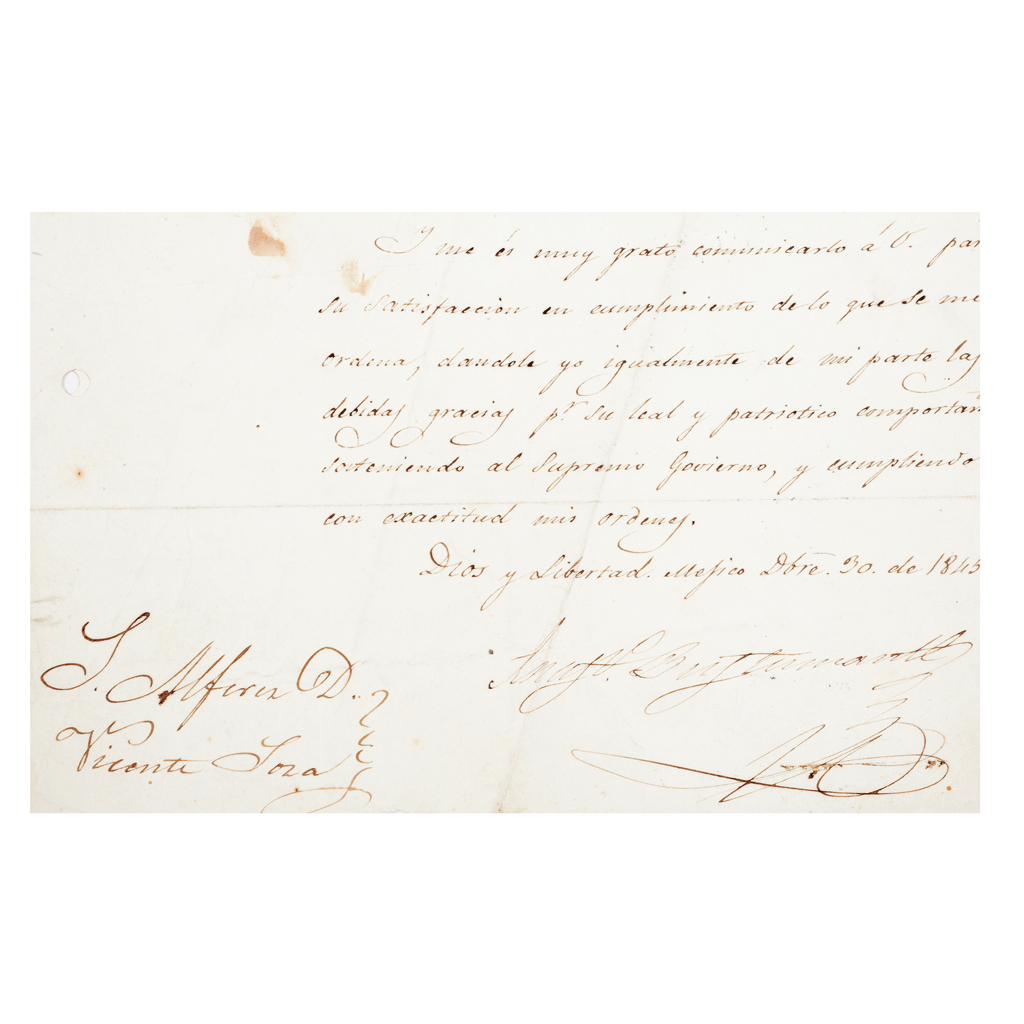 Y me és muy grato comunicarlo á V. par
su satisfaccion en cumplimiento de lo que se me
ordena, dandole yo igualmente de mi parte las
debidas gracias pr. su leal y patriotico comportam
sosteniendo al Supremo Govierno, y cumpliendo
con exactitud mis ordenes.
Dios y Libertad. Mejico Dbre. 30. de 1845
Anastº. Bustamante
S. Alferez D.
Vicente Sosa